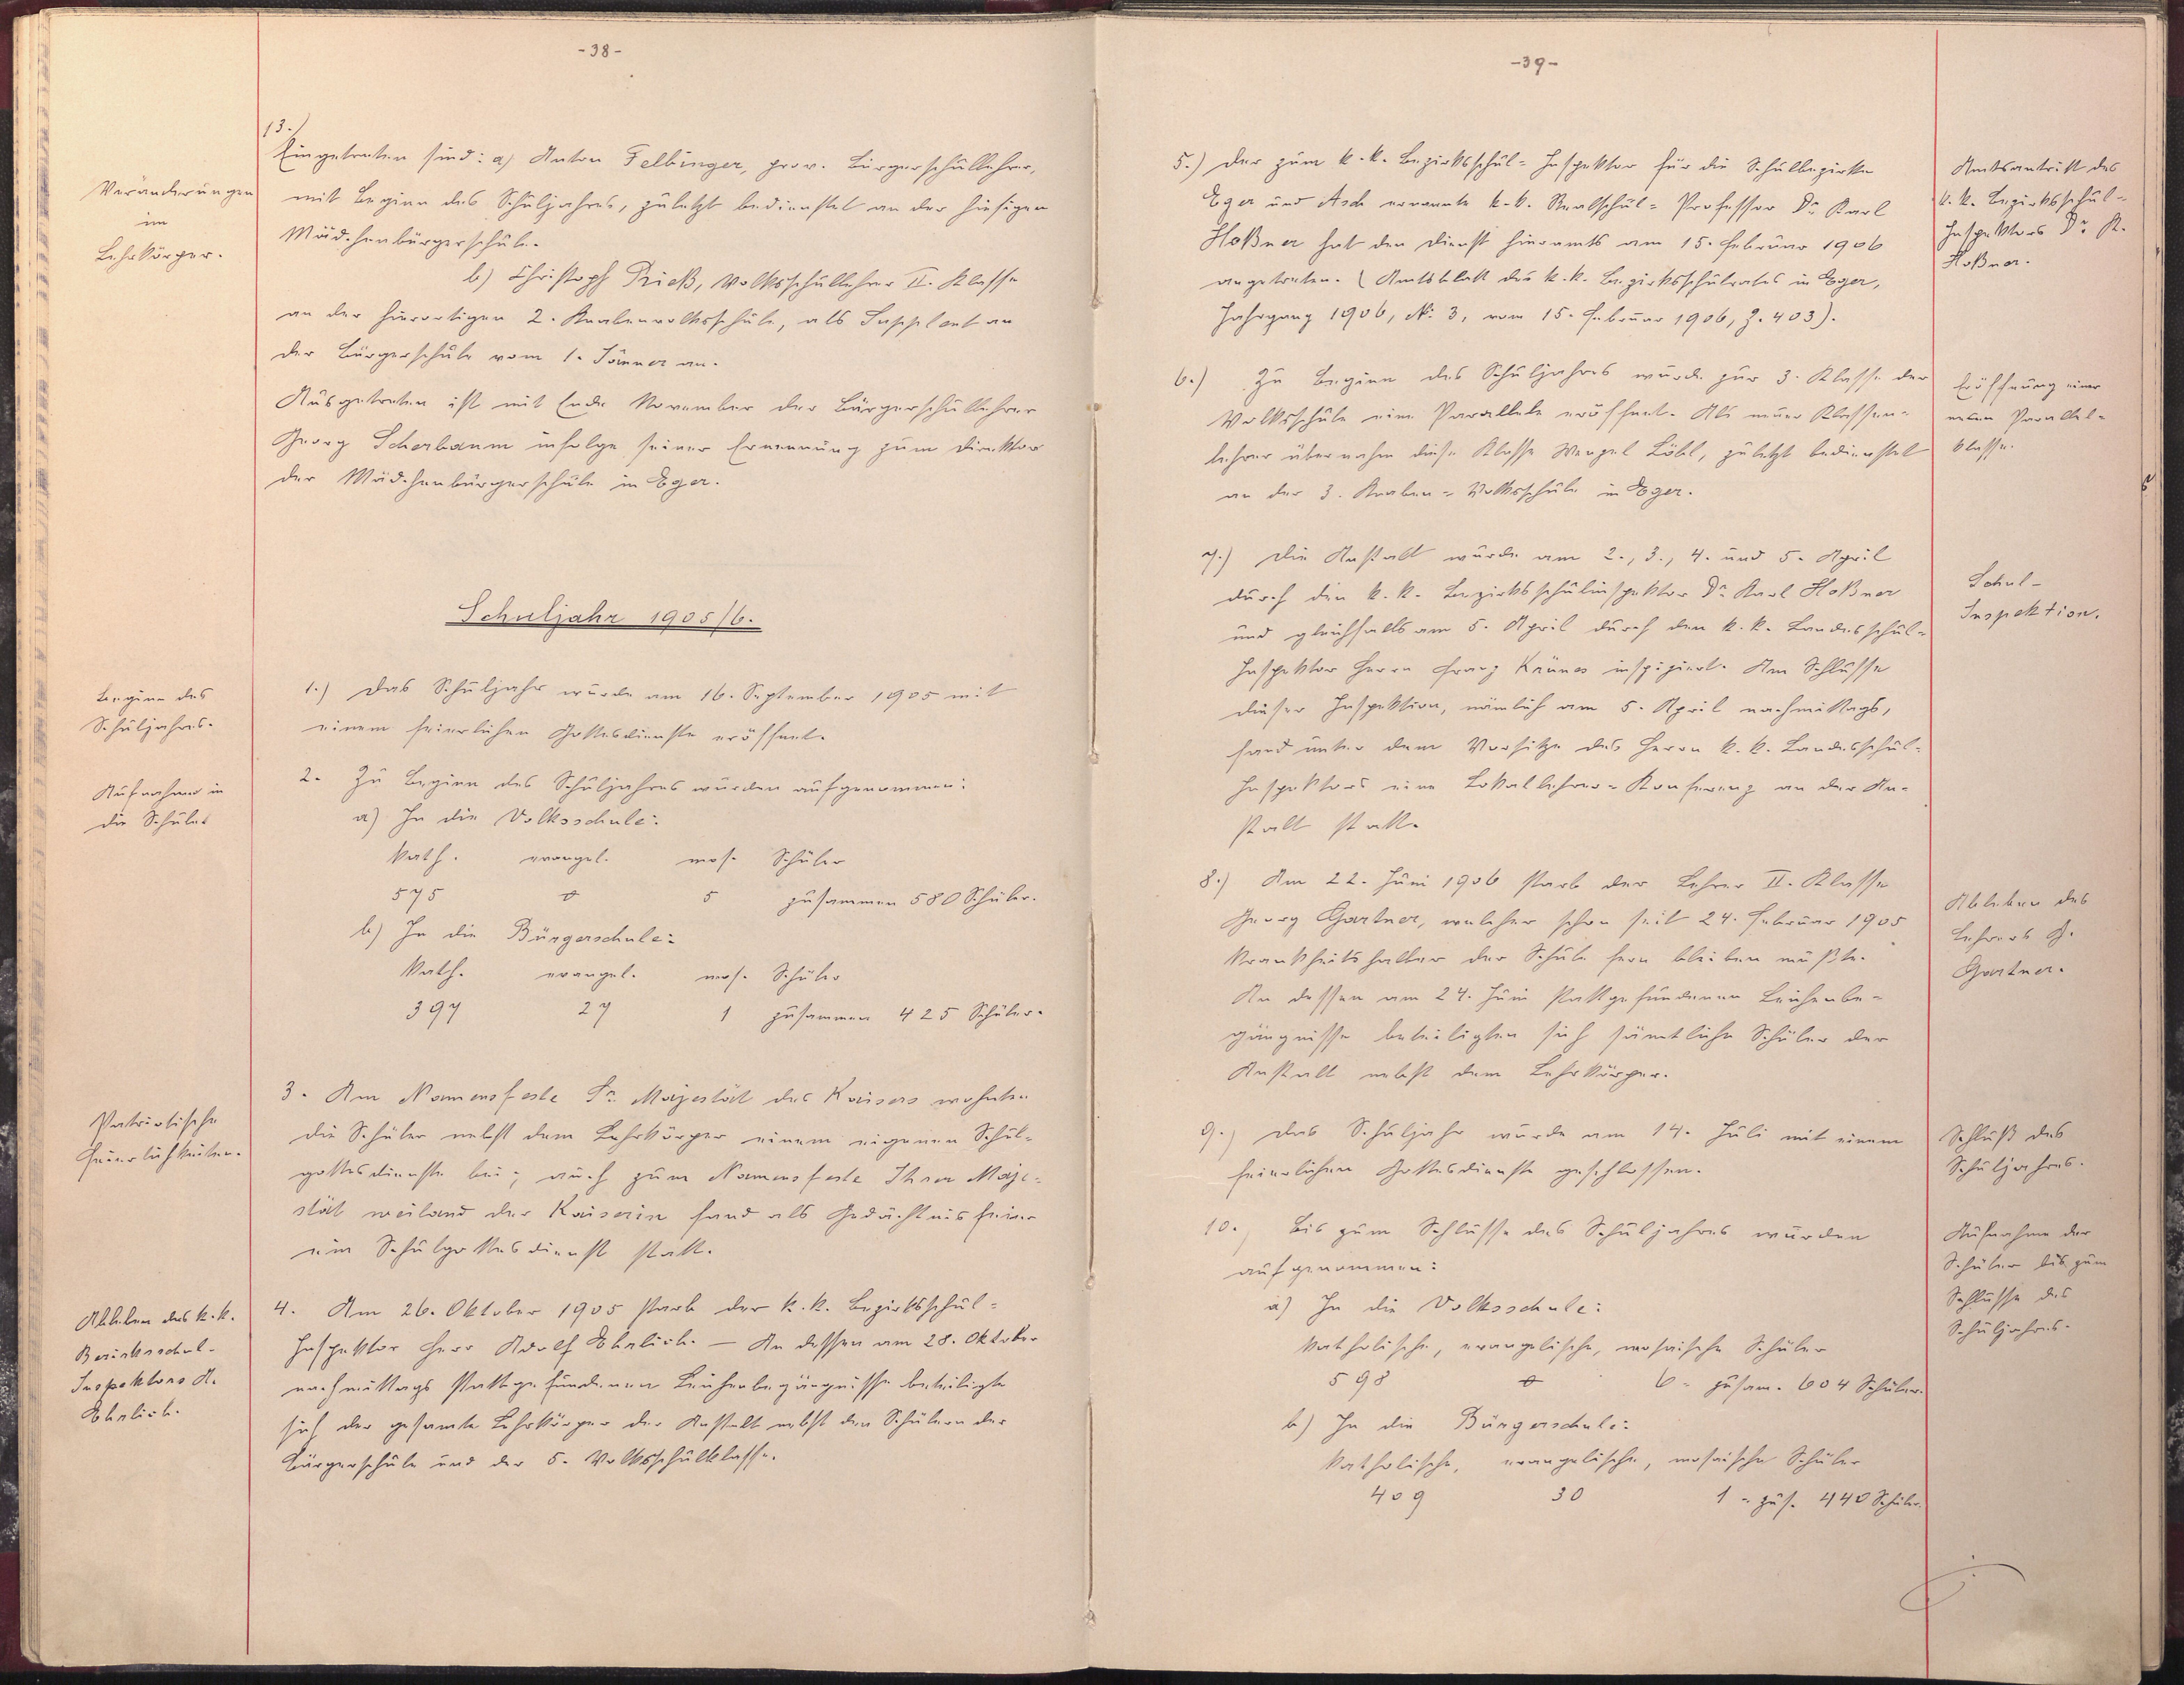 -38-
13.
Eingetreten sind: a) Anton Felbinger, prov. Bürgerschullehrer,
mit Beginn des Schuljahres, zuletzt bedienstet an der hiesigen
Mädchenbürgerschule.
Veränderungen
im
Lehrkörper.
b) Christoph Prieß, Volksschullehrer II. Klasse
an der hierortigen 2. Knabenvolksschule, als Supplent an
der Bürgerschule vom 1. Jänner an.
Ausgetreten ist mit Ende November der Bürgerschullehrer
Georg Scherbaum infolge seiner Ernennung zum Direktor
der Mädchenbürgerschule in Eger.
Schuljahr 1905/6.
Beginn des
Schuljahres.
1.) Das Schuljahr wurde am 16. September 1905 mit
einem feierlichen Gottesdienste eröffnet.
Aufnahme in
die Schule.
2. Zu Beginn des Schuljahres wurden aufgenommen:
a) In die Volksschule:
kath. evangel. mos. Schüler
575 0 5 zusammen 580 Schüler.
b) In die Bürgerschule:
kath. evangel. mos. Schüler
397 27 1 zusammen 425 Schüler.
Patriotische
Feierlichkeiten.
3. Am Namensfeste Sr. Majestät des Kaisers wohnten
die Schüler nebst dem Lehrkörper einem eigenen Schul=
gottesdienste bei; auch zum Namensfeste Ihrer Maje=
stät weiland der Kaiserin fand als Gedächtnisfeier
ein Schulgottesdienst statt.
Ableben des k.k.
Bezirksschul-
Inspektors A.
Ehrlich.
4. Am 26. Oktober 1905 starb der k.k. Bezirksschul=
Inspektor Herr Adolf Ehrlich. — An dessen am 28. Oktober
nachmittags stattgefundenen Leichenbegängnisse beteiligte
sich der gesamte Lehrkörper der Anstalt nebst den Schülern der
Bürgerschule und der 5. Volksschulklasse.
-39-
5.) Der zum k.k. Bezirksschul=Inspektor für die Schulbezirke
Eger und Asch ernannte k.k. Realschul=Professor Dr. Karl
Hoßner hat den Dienst hieramts am 15. Februar 1906
angetreten. (Amtsblatt des k.k. Bezirksschulrates in Eger,
Jahrgang 1906, No. 3, vom 15. Februar 1906, Z. 403).
Amtsantritt des
k.k. Bezirksschul=
Inspektors Dr. K.
Hoßner.
6.) Zu Beginn des Schuljahres wurde zur 3. Klasse der
Volksschule eine Parallele eröffnet. Als neuer Klassen=
lehrer übernahm diese Klasse Wenzel Löbl, zuletzt bedienstet
an der 3. Knaben=Volksschule in Eger.
Eröffnung einer
neuen Parallel=
klasse.
7.) Die Anstalt wurde am 2., 3., 4. und 5. April
durch den k.k. Bezirksschulinspektor Dr. Karl Hoßner
und gleichfalls am 5. April durch den k.k. Landesschul=
Inspektor Herrn Franz inspiziert. Am Schlusse
dieser Inspektion, nämlich am 5. April nachmittags,
fand unter dem Vorsitze des Herrn k.k. Landesschul=
Inspektors eine Lokallehrer=Konferenz an der An=
stalt statt.
Schul-
Inspektion.
8.) Am 22. Juni 1906 starb der Lehrer II. Klasse
Georg Gartner, welcher schon seit 24. Februar 1905
krankheitshalber der Schule fern bleiben mußte.
An dessen am 24. Juni stattgefundenen Leichenbe=
gängnisse beteiligten sich sämtliche Schüler der
Anstalt nebst dem Lehrkörper.
Ableben des
Lehrers G.
Gartner.
9.) Das Schuljahr wurde am 14. Juli mit einem
feierlichen Gottesdienste geschlossen.
Schluß des
Schuljahres.
10., Bis zum Schlusse des Schuljahres wurden
aufgenommen:
a) In die Volksschule:
katholische, evangelische, mosaische Schüler
598 0 6 = zusam. 604 Schüler.
b) In die Bürgerschule:
katholische, evangelische, mosaische Schüler
409 30 1 = zus. 440 Schüler.
Aufnahme der
Schüler bis zum
Schlusse des
Schuljahres.